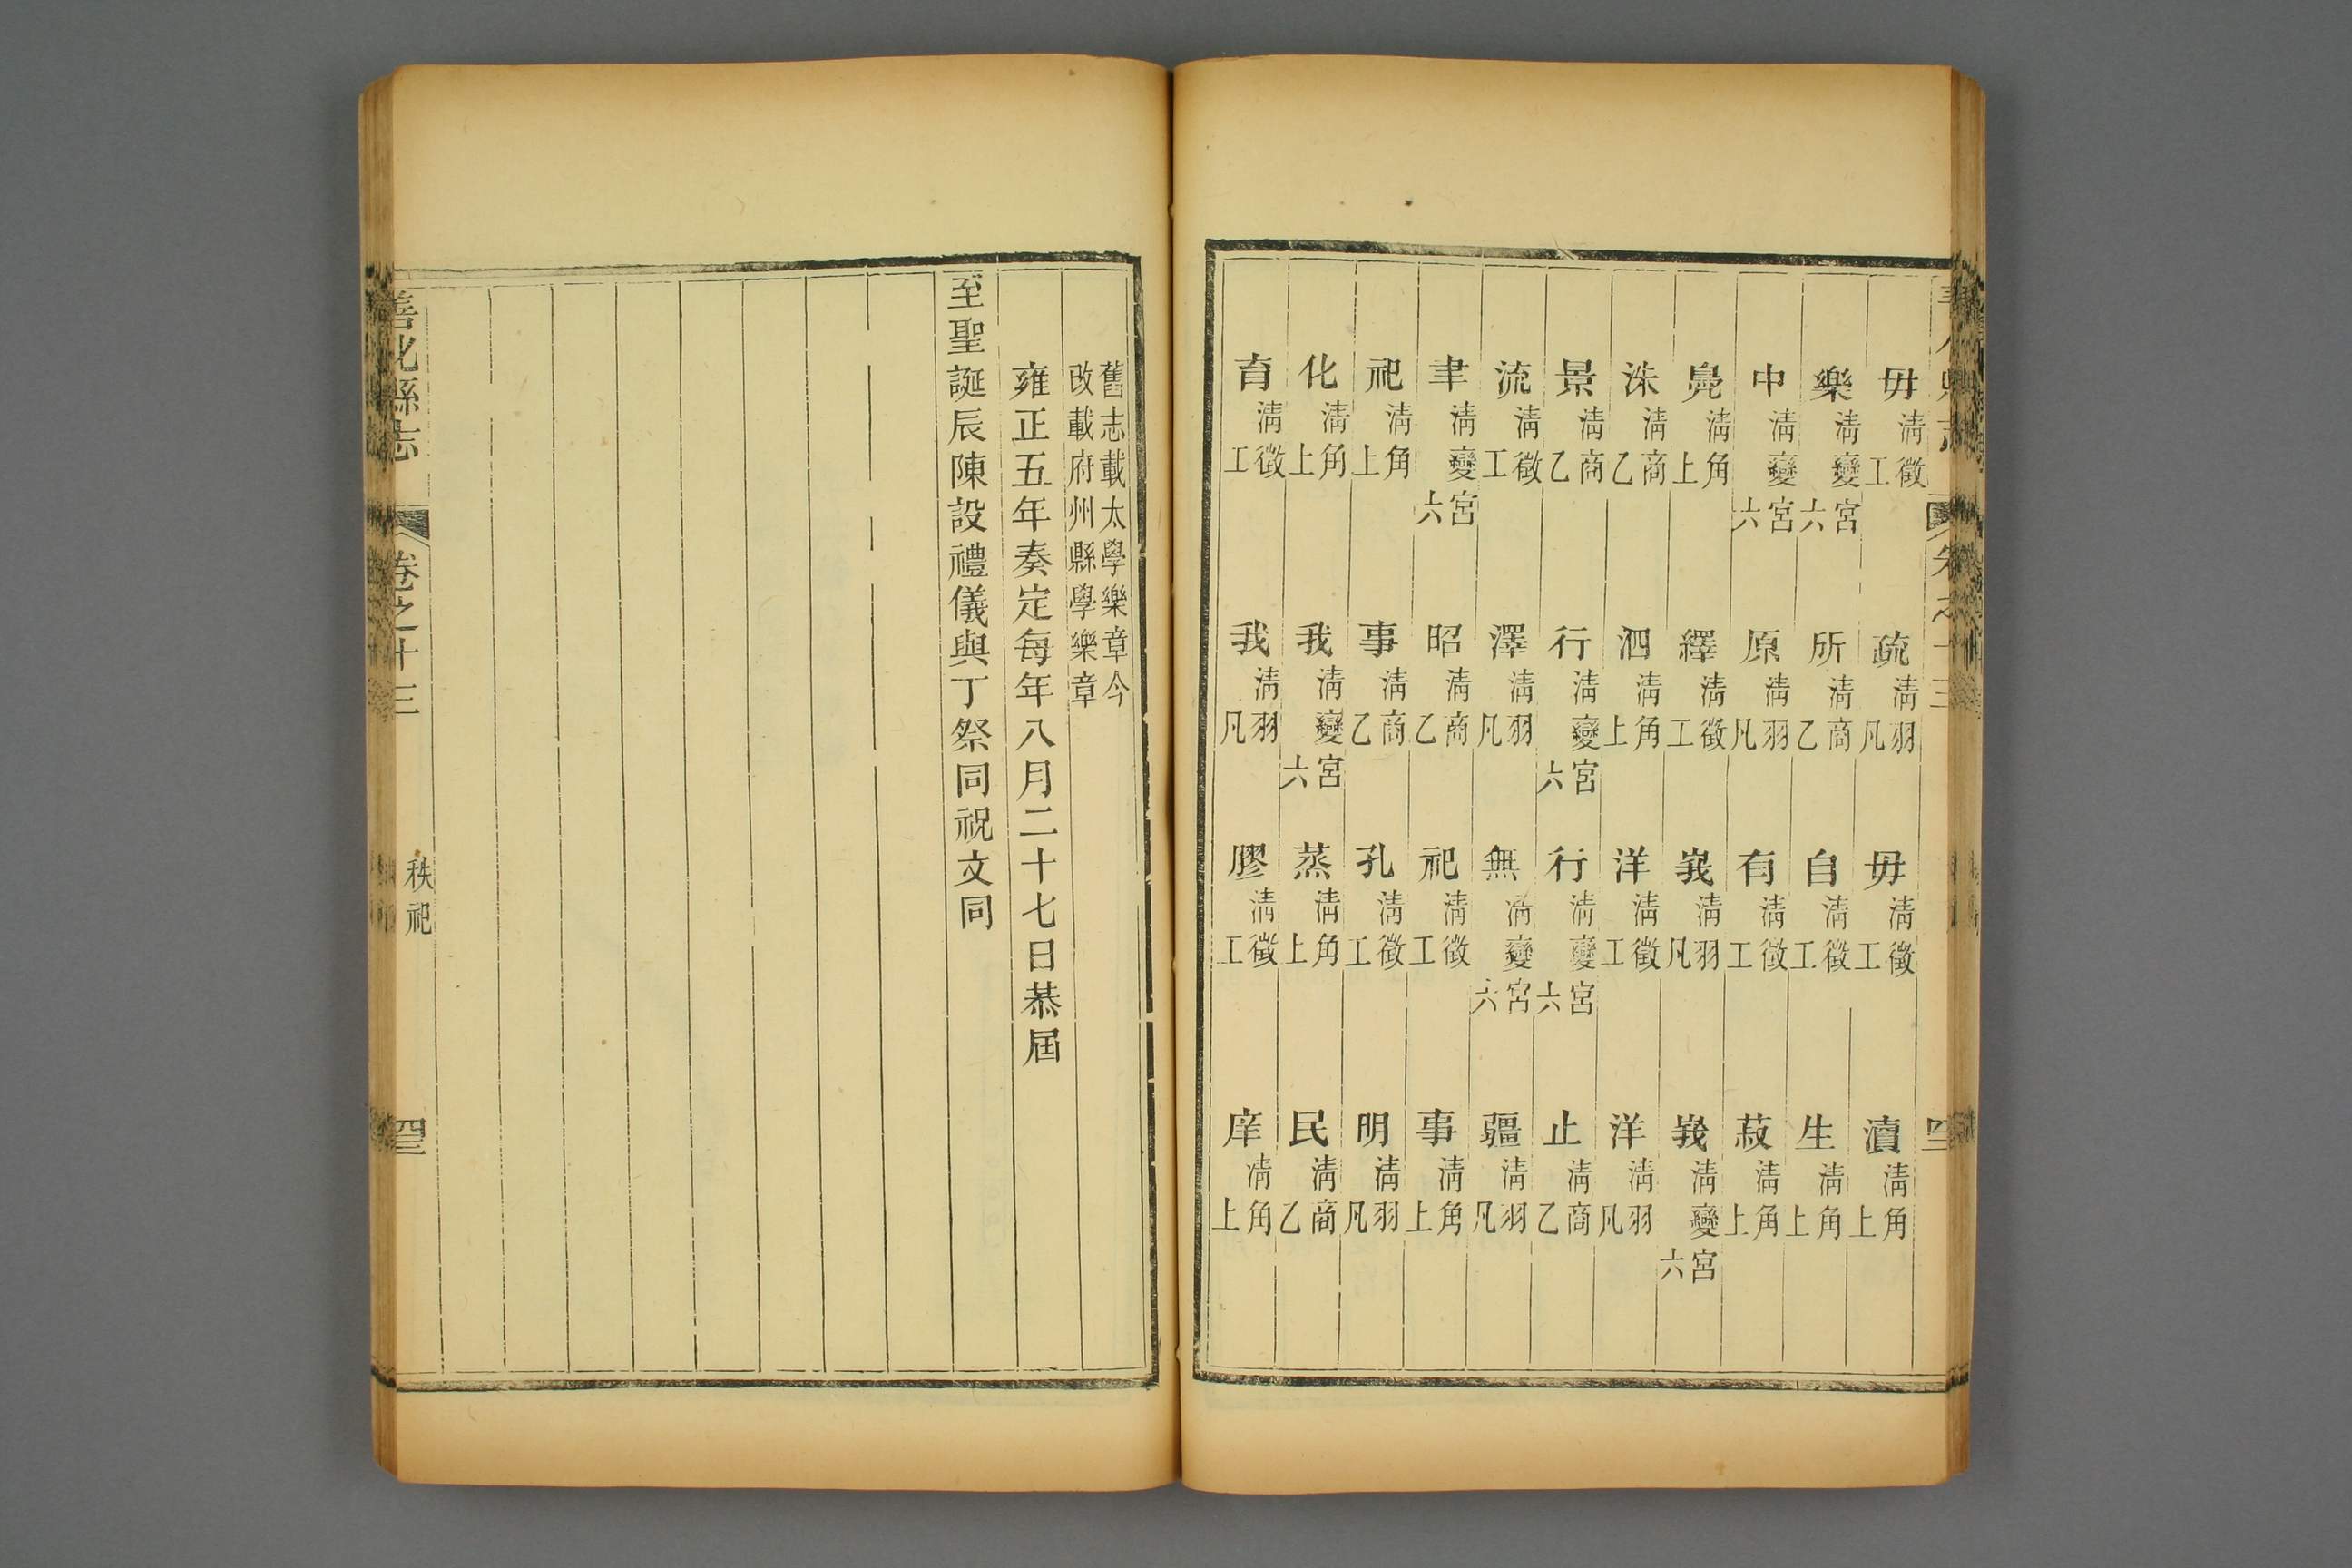 毋清徵工疏清羽凡毋清徵工瀆清角上
樂清變宮六所清商乙自清徵工生清角上
中清變宮六原清羽凡有清徵工菽清角上
鳧清角上繹清徵工峩清羽凡峩清變宮六
洙清商乙泗清角上洋清徵工洋清羽凡
景清商乙行清變宮六行清變宮六止清商乙
流清徵工澤清羽凡無清變宮六疆清羽凡
聿清變宮六昭清商乙祀清徵工事清角上
祀清角上事清商乙孔清徵工明清羽凡
化清角上我清變宮六蒸清角上民清商乙
育清徵工我清羽凡膠清徵工庠清角上
舊志載太學樂章今
改載府州縣學樂章
雍正五年奏定每年八月二十七日恭屆
至聖誕辰陳設禮儀與丁祭同祝文同
善化縣志 卷之十三 秩祀